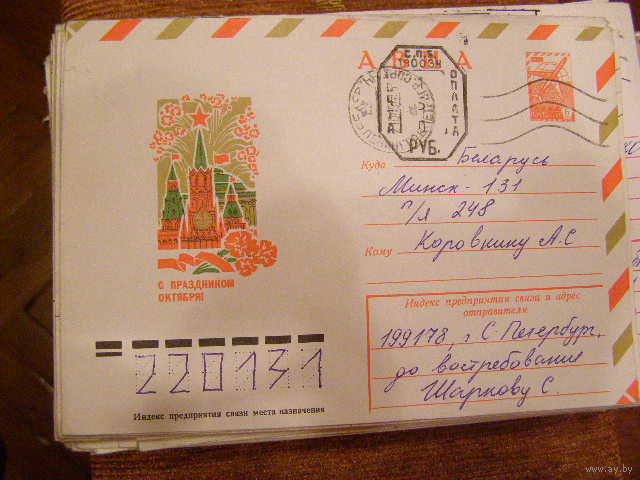 АВИА
С.П.Б.
190034
ОПЛАТА
РУБ.
Куда
Беларусь
Минск - 131
п/я 248
Кому
Коровкину А.С
С ПРАЗДНИКОМ
ОКТЯБРЯ!
Индекс предприятия связи и адрес
отправителя
199178, г. С. Петербург,
до востребования
Шаркову С.
220131
Индекс предприятия связи места назначения
www.ay.by